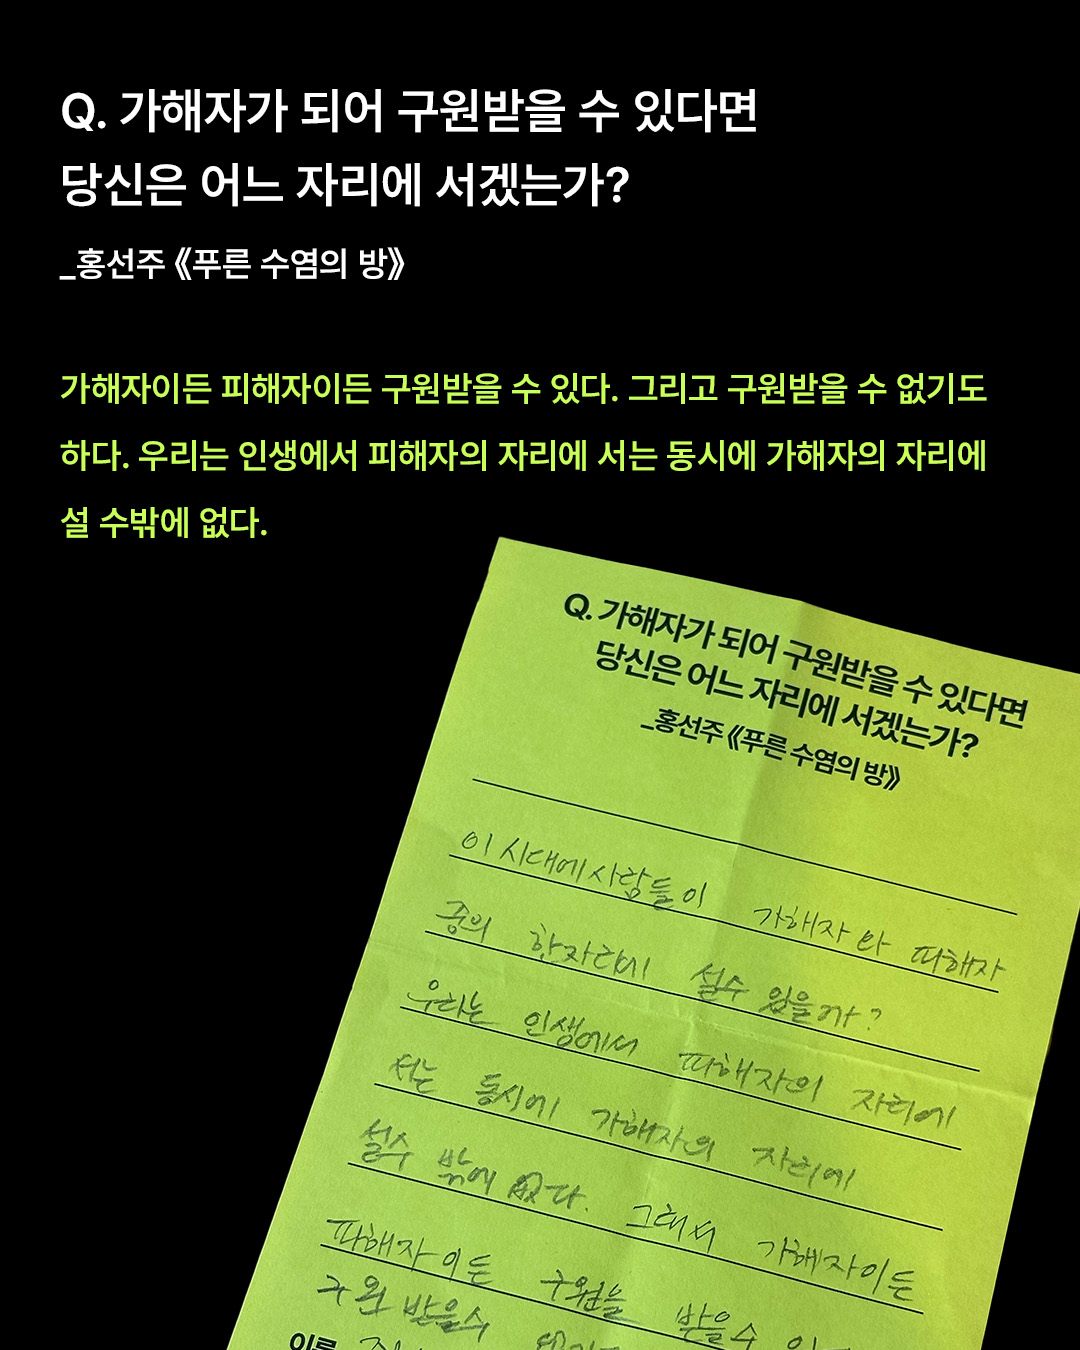 Q. 가해자가 되어 구원받을 수 있다면
당신은 어느 자리에 서겠는가?
_홍선주 《푸른 수염의 방》
가해자이든 피해자이든 구원받을 수 있다. 그리고 구원받을 수 없기도
하다. 우리는 인생에서 피해자의 자리에 서는 동시에 가해자의 자리에
설 수밖에 없다.
Q. 가해자가 되어 구원받을 수 있다면
당신은 어느 자리에 서겠는가?
_홍선주 《푸른 수염의 방》
이 시대에 사람들이 가해자와 피해자
중의 한자리에 설수 있을까?
우리는 인생에서 피해자의 자리에
서는 동시에 가해자의 자리에
설수 밖에 없다. 그래서 가해자이든
피해자이든 구원을 받을수
구원 받을수
이름